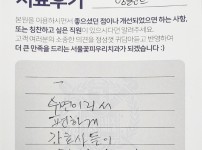 치료후기
본원을 이용하시면서 좋으셨던 점이나 개선되었으면 하는 사항,
또는 칭찬하고 싶은 직원이 있으시다면 알려주세요.
고객 여러분의 소중한 의견을 정성껏 귀담아듣고 반영하여
더 큰 만족을 드리는 서울꽃미우리치과가 되겠습니다 :)
수면이라서
편하게
간호사들이